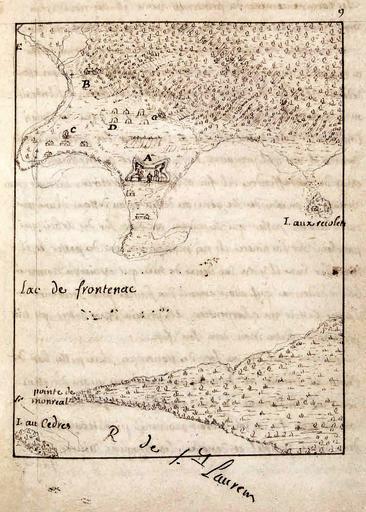 9
E
B
D
G
C
A
I. aux recolets
Lac de frontenac
pointe de
monreal
I. au Cedres
R de St Laurens